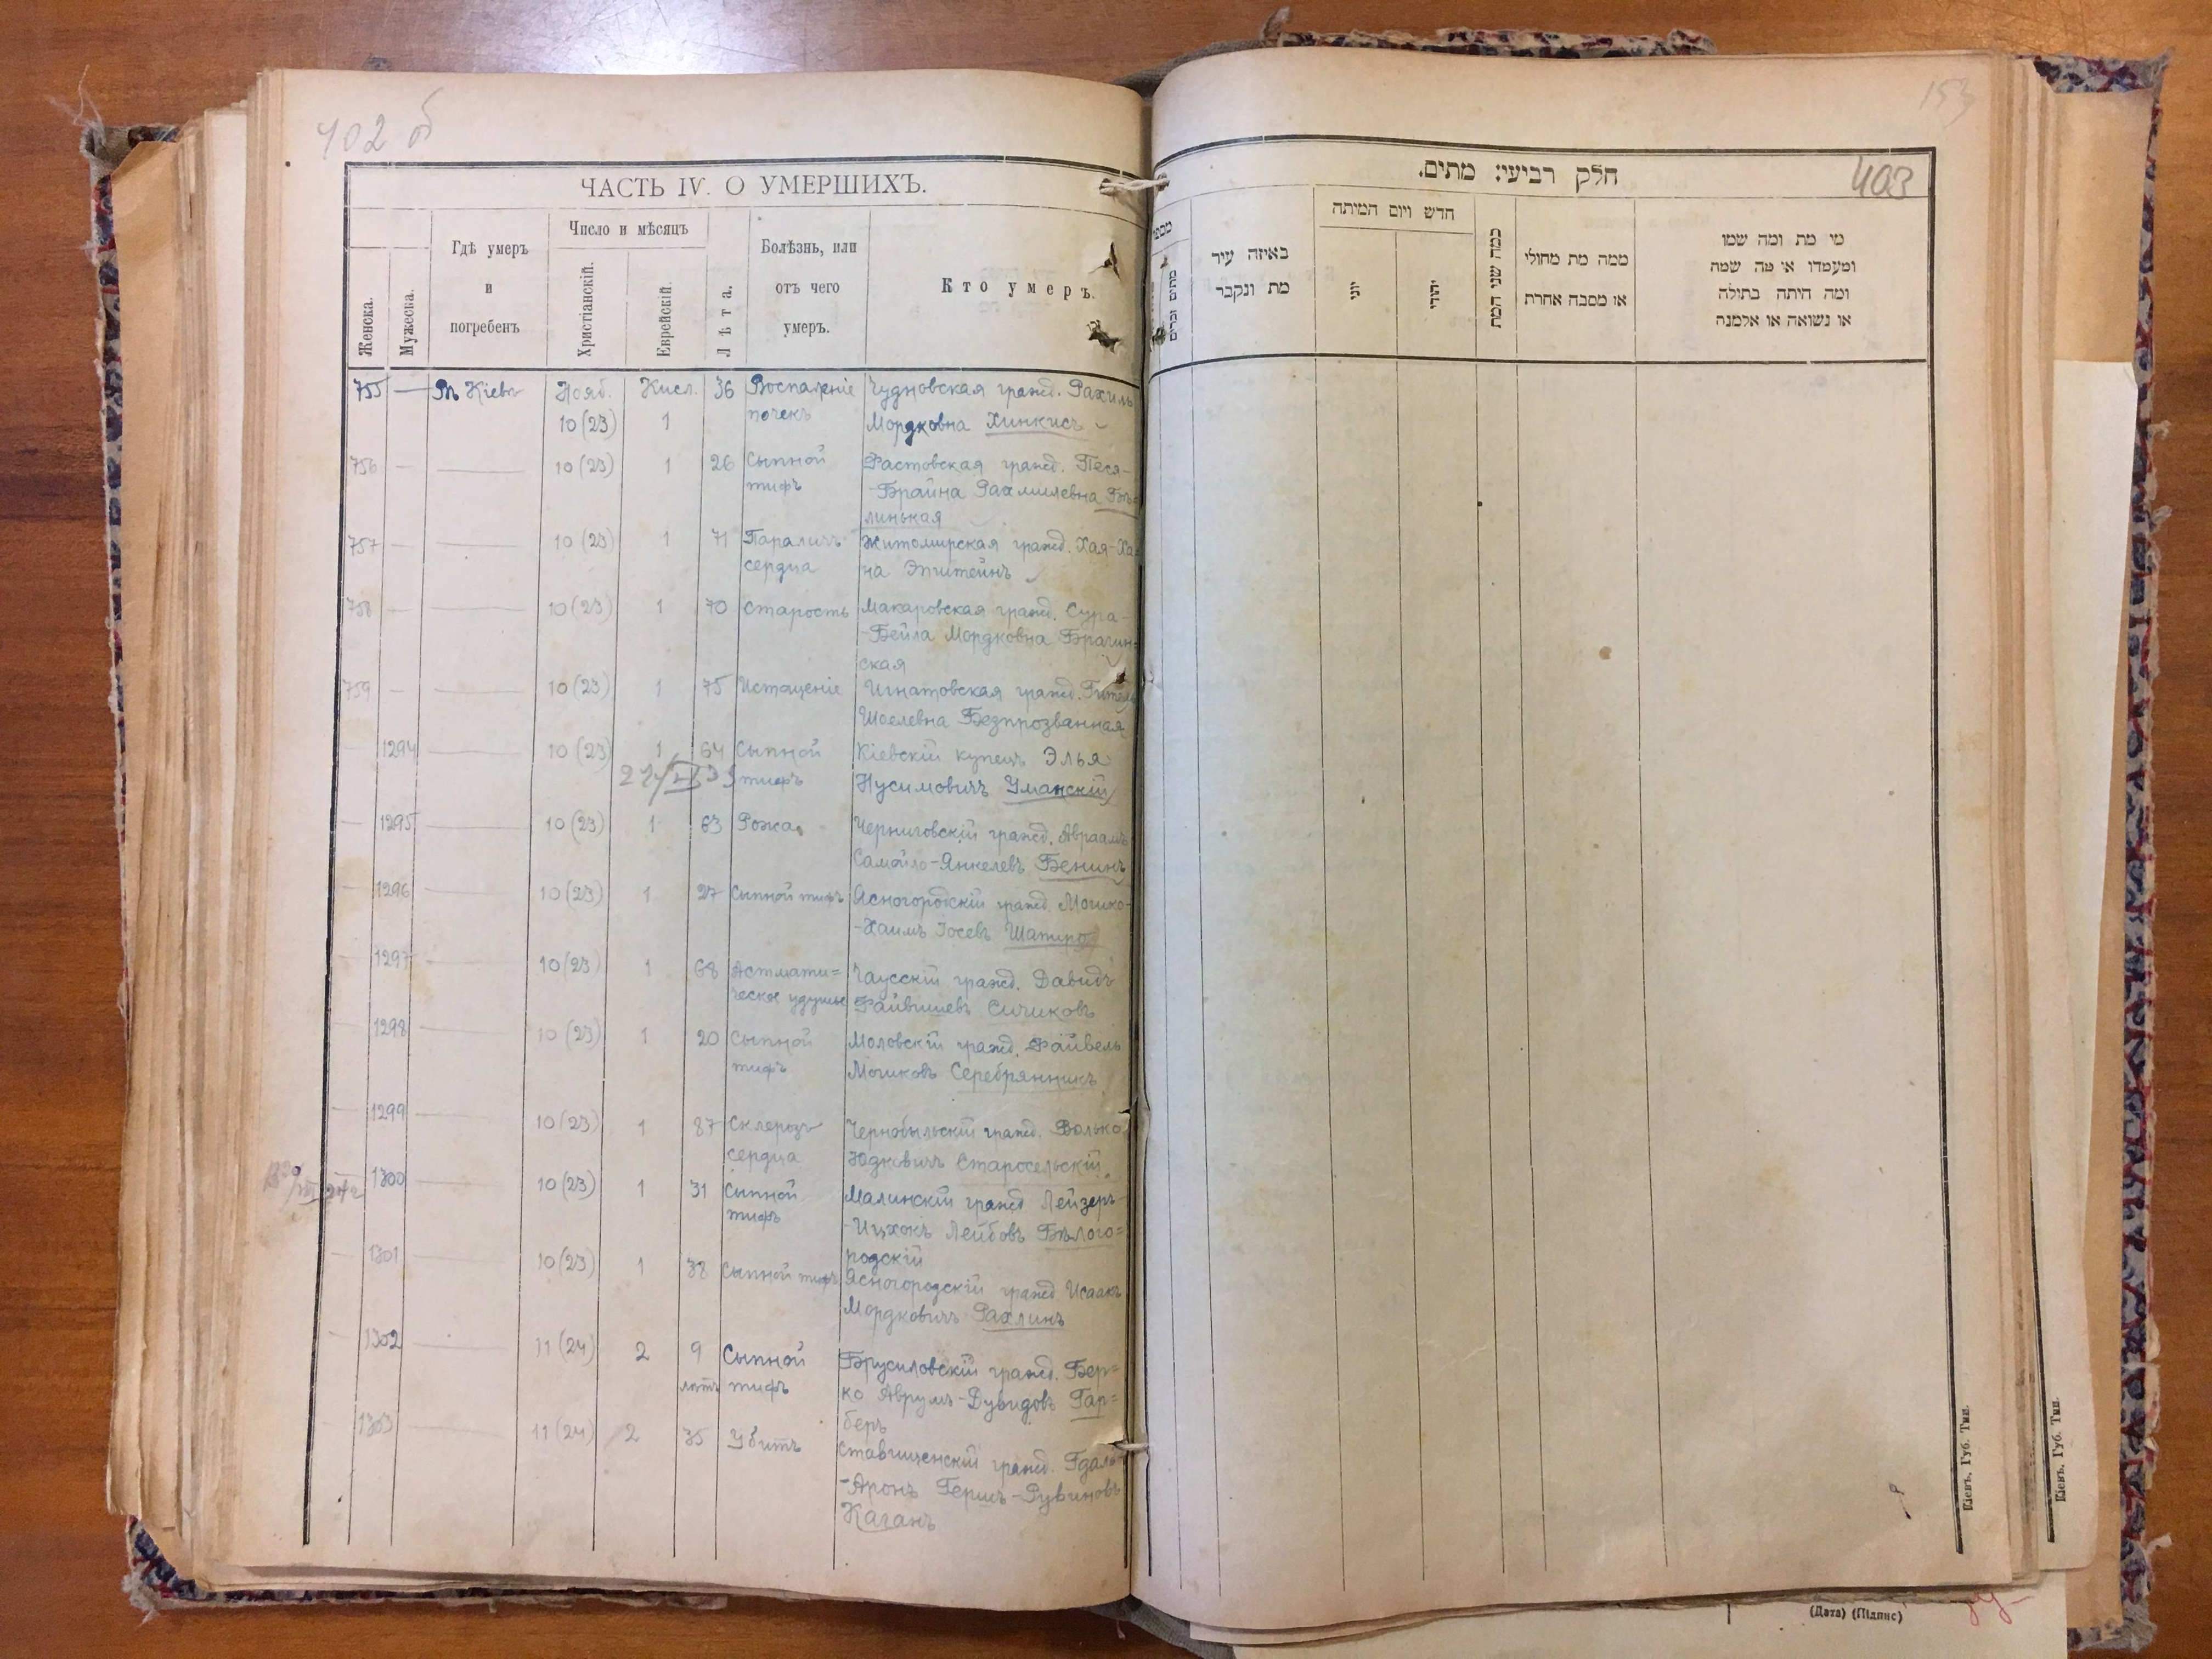 402 об
ЧАСТЬ IV. О УМЕРШИХЪ.
Женска.
Мужеска.
Гдѣ умеръ
и
погребенъ
Число и мѣсяцъ
Христіанскій.
Еврейскій.
Лѣта.
Болѣзнь, или
отъ чего
умеръ.
Кто умеръ.
755 — Въ Кіевѣ Нояб. Кисл. 36 Воспаленіе Чудновская гражд. Рахиль
10 (23) 1 почекъ Мордковна Хинкисъ
756 — 10 (23) 1 26 Сыпной Фастовская гражд. Песя-
тифъ -Брайна Рахмилевна Бѣ-
линькая
757 — 10 (23) 1 71 Параличъ Житомирская гражд. Хая-Ха-
сердца на Эпштейнъ
758 — 10 (23) 1 70 Старость Макаровская гражд. Сура-
-Бейла Мордковна Брагин-
ская
759 — 10 (23) 1 75 Истощеніе Игнатовская гражд. Гитель
Шоелевна Безпрозванная
1294 10 (23) 1 64 Сыпной Кіевскій купецъ Элья
тифъ Нусимовичъ Уманскій
1295 10 (23) 1 63 Рожа Черниговскій гражд. Авраамъ
Самойло-Янкелевъ Бенинъ
1296 10 (23) 1 27 Сыпной тифъ Ясногородскій гражд. Мошко-
-Хаимъ Іосевъ Шапиро
1297 10 (23) 1 68 Астмати= Чаусскій гражд. Давидъ
ческое удушье Файвишевъ Сичиковъ
1298 10 (23) 1 20 Сыпной Моловскій гражд. Файвель
тифъ Мошковъ Серебрянникъ
1299 10 (23) 1 87 Склерозъ Чернобыльскій гражд. Волько
сердца Юдковичъ Старосельскій
1300 10 (23) 1 31 Сыпной Малинскій гражд Лейзеръ-
тифъ -Ицхокъ Лейбовъ Бѣлого=
родскій
1301 10 (23) 1 38 Сыпной тифъ Ясногородскій гражд Исаакъ
Мордковичъ Рахлинъ
1302 11 (24) 2 9 Сыпной Брусиловскій гражд. Бер=
лѣтъ тифъ ко Аврумъ-Дувидовъ Гар=
беръ
1303 11 (24) 2 35 Убитъ Ставищенскій гражд. Гдаль-
-Аронъ Гершъ-Рувиновъ
Каганъ
153
403
חלק רביעי: מתים.
מתים זכרים
באיזה עיר
מת ונקבר
חדש ויום המיתה
יוני
יהודי
כמה שני המת
ממה מת מחולי
או מסבה אחרת
מי מת ומה שמו
ומעמדו או מה שמה
ומה היתה בתולה
או נשואה או אלמנה
Кіевъ, Губ. Тип.
Кіевъ, Губ. Тип.
(Дата) (Підпис)